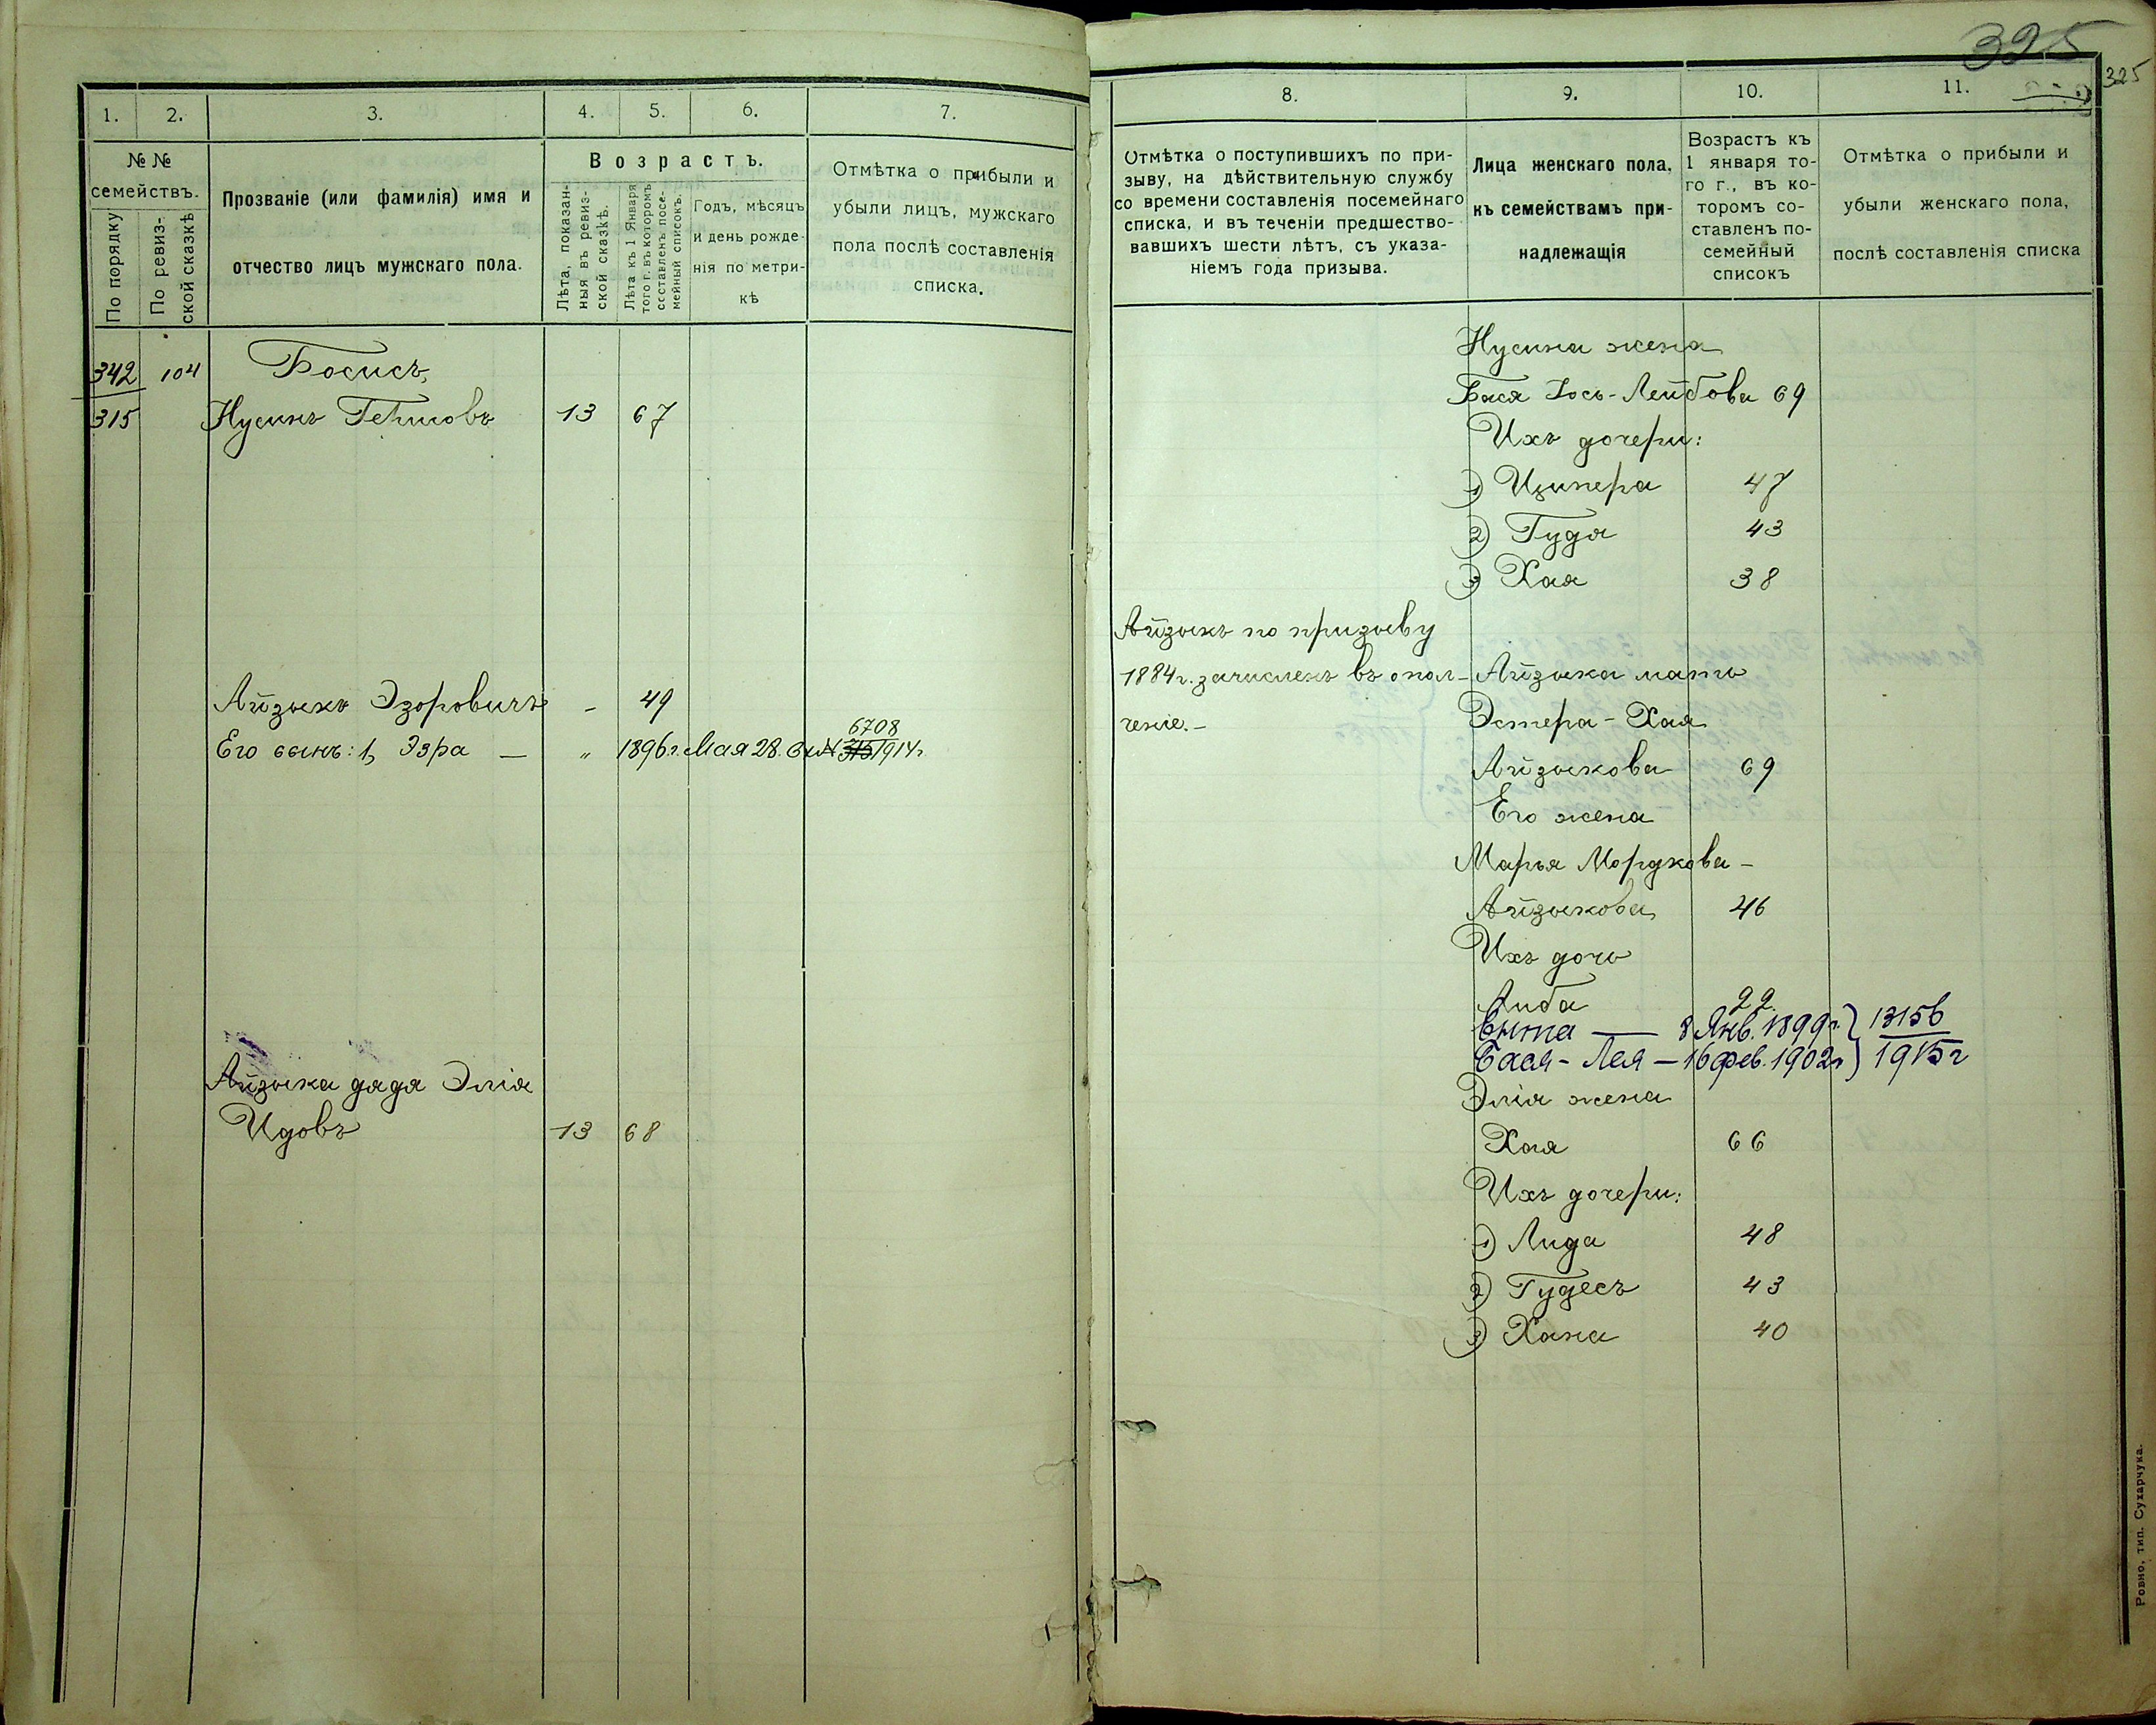 325
325
1.
2.
3.
4.
5.
6.
7.
№ №
семействъ.
По порядку
По ревиз-
ской сказкѣ
Прозваніе (или фамилія) имя и
отчество лицъ мужскаго пола.
Возрастъ.
Лѣта, показан-
ныя въ ревиз-
ской сказкѣ.
Лѣта къ 1 Января
того г. въ которомъ
составленъ посе-
мейный списокъ.
Годъ, мѣсяцъ
и день рожде-
нія по метри-
кѣ
Отмѣтка о прибыли и
убыли лицъ, мужскаго
пола послѣ составленія
списка.
342 104 Босисъ,
315 Нусинъ Гершовъ 13 67
Айзыкъ Эзоровичъ - 49
6708
Его сынъ: 1, Эзра — " 1896 г. Мая 28. См № 315 1914 г.
Айзыка дядя Элія
Идовъ 13 68
8.
9.
10.
11.
Отмѣтка о поступившихъ по при-
зыву, на дѣйствительную службу
со времени составленія посемейнаго
списка, и въ теченіи предшество-
вавшихъ шести лѣтъ, съ указа-
ніемъ года призыва.
Лица женскаго пола,
къ семействамъ при-
надлежащія
Возрастъ къ
1 января то-
го г., въ ко-
торомъ со-
ставленъ по-
семейный
списокъ
Отмѣтка о прибыли и
убыли женскаго пола,
послѣ составленія списка
Нусина жена
Бася Іось-Лейбова 69
Ихъ дочери:
1) Ципера 47
2) Гудя 43
3) Хая 38
Айзыкъ по призыву
1884 г. зачисленъ въ опол-
ченіе.-
Айзыка мать
Эстера-Хая
Айзыкова 69
Его жена
Марья Мордкова-
Айзыкова 46
Ихъ дочь
Либа 22
Сыта — 8 Янв. 1899 г. } 13156
Бася-Лея — 16 фев. 1902 г } 1915 г
Элія жена
Хая 66
Ихъ дочери:
1) Лида 48
2) Гудесъ 43
3) Хана 40
Ровно, тип. Сухарчука.